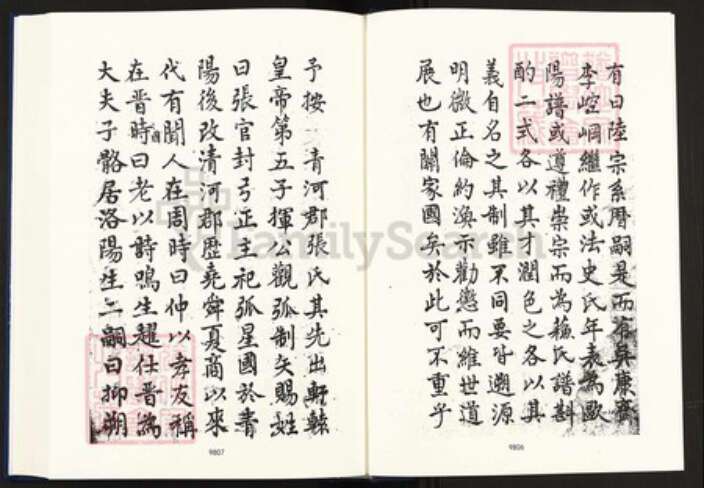 有曰陸宗系曆嗣是而若吳康齋
李崆峒繼作或法史氏年表為歐
陽譜或遵禮崇宗而為蘇氏譜斟
酌二式各以其才潤色之各以其
義自名之其制雖不同要皆遡源
明微正倫約渙示勸懲而維世道
展也有關家國矣於此可不重乎
9806
予按青河郡張氏其先出軒轅
皇帝第五子揮公觀弧制矢賜姓
曰張官封弓正主祀弧星國於青
陽後改清河郡歷堯舜夏商以來
代有聞人在周時曰仲以孝友稱
在晋時曰老以詩鳴生趯仕晋為
大夫子骼居洛陽生二嗣曰抑朔
9807
FamilySearch